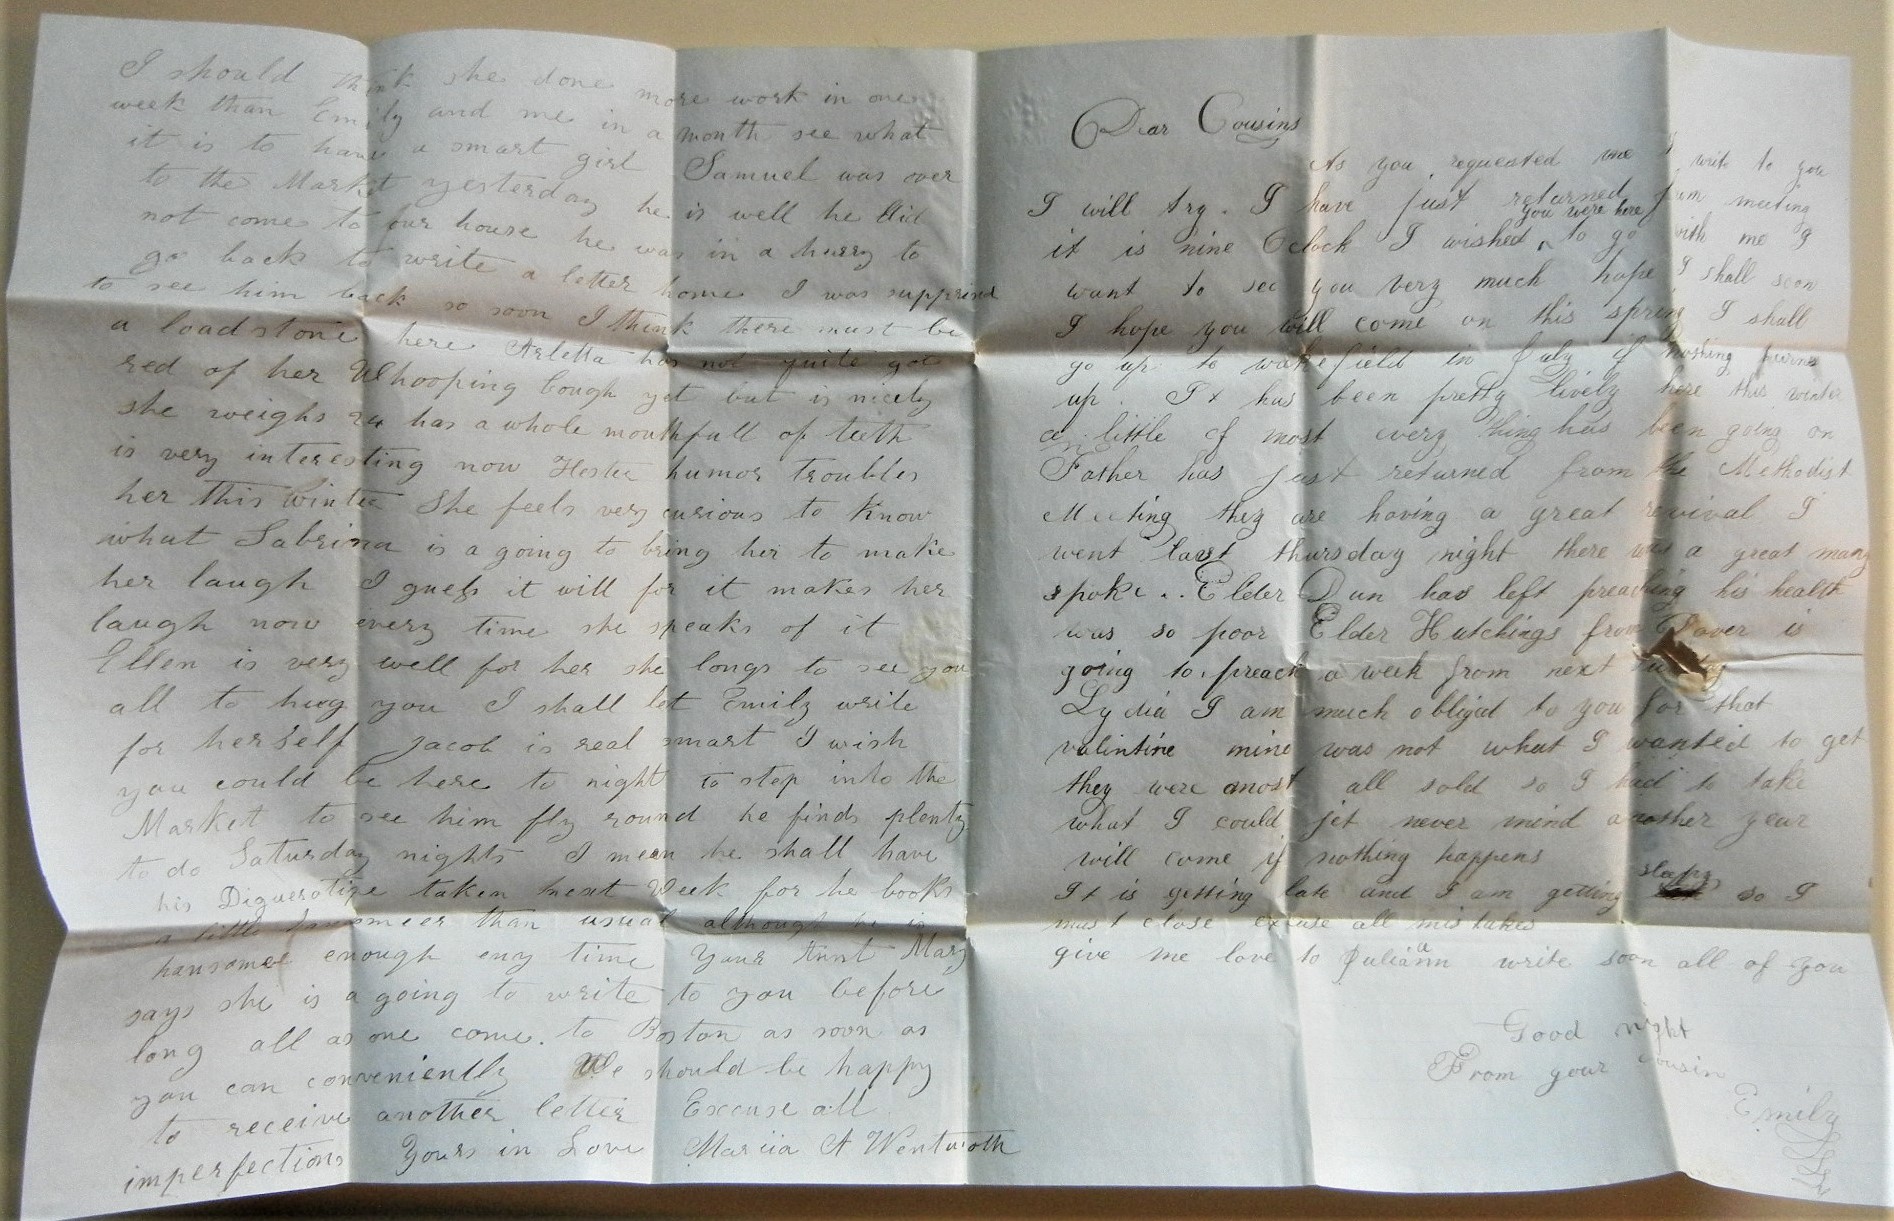 I should think she done more work in one
week than Emily and me in a month see what
it is to have a smart girl Samuel was over
to the Market yesterday he is well he did
not come to our house he was in a hurry to
go back to write a letter home I was supprised
to see him back so soon I think there must be
a loadstone here Arletta has not quite got
red of her Whooping Cough yet but is nicely
she weighs 24 has a whole mouthfull of teeth
is very interesting now Hester humor troubles
her this winter She feels very curious to know
what Sabrina is a going to bring her to make
her laugh I guess it will for it makes her
laugh now every time she speaks of it
Ellen is very well for her she longs to see you
all to hug you I shall let Emily write
for herself Jacob is real smart I wish
you could be here to night to step into the
Market to see him fly round he finds plenty
to do Saturday nights I mean he shall have
his Diguerotipe taken next Week for he looks
a little hansomeer than usual although he is
hansome enough eny time Your Aunt Mary
says she is a going to write to you before
long all as one come to Boston as soon as
you can conveniently We should be happy
to receive another letter Excuse all
imperfections Yours in Love Marcia A Wentworth
Dear Cousins
As you requested me I write to you
I will try. I have just returned from meeting
you were here
it is nine Oclock I wished to go with me I
want to see you very much hope I shall soon
I hope you will come on this spring I shall
go up to wakefield in July if nothing purns
up. It has been pretty lively here this winter
a little of most every thing has been going on
Father has just returned from the Methodist
Meeting they are having a great revival I
went last thursday night there was a great many
spoke.. Elder Dun has left preaching his health
was so poor Elder Hutchings from Dover is
going to preach a week from next
Lydia I am much obliged to you for that
valintine mine was not what I wanted to get
they were most all sold so I had to take
what I could jet never mind another year
will come if nothing happens
sleapy
It is getting late and I am getting so I
must close excuse all mistakes
give me love to Juliann write soon all of you
Good night
From your cousin
Emily